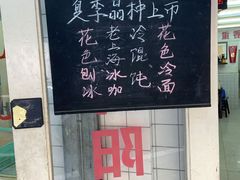 夏季品种上市
花色冷面
冷馄饨
老上海冰咖
花色刨冰